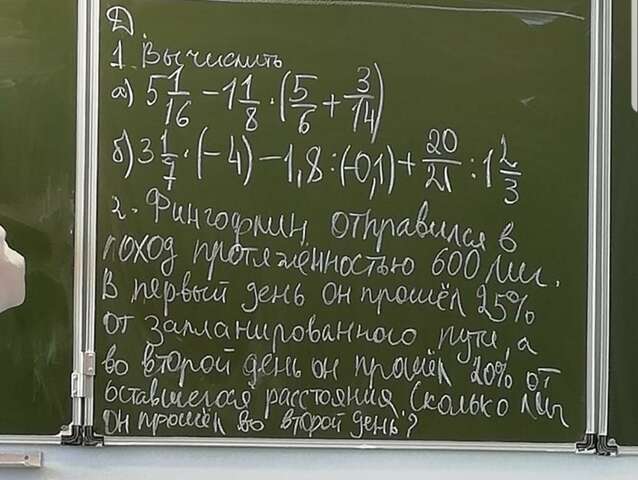 Д
1. Вычислить
а) 5 1/16 - 1 1/8 · (5/6 + 3/14)
б) 3 1/7 · (-4) - 1,8 : (-0,1) + 20/21 : 1 2/3
2. Фингофкин отправился в
поход протяжённостью 600 лиг.
В первый день он прошёл 25%
от запланированного пути, а
во второй день он прошёл 20% от
оставшегося расстояния. Сколько лиг
он прошёл во второй день?